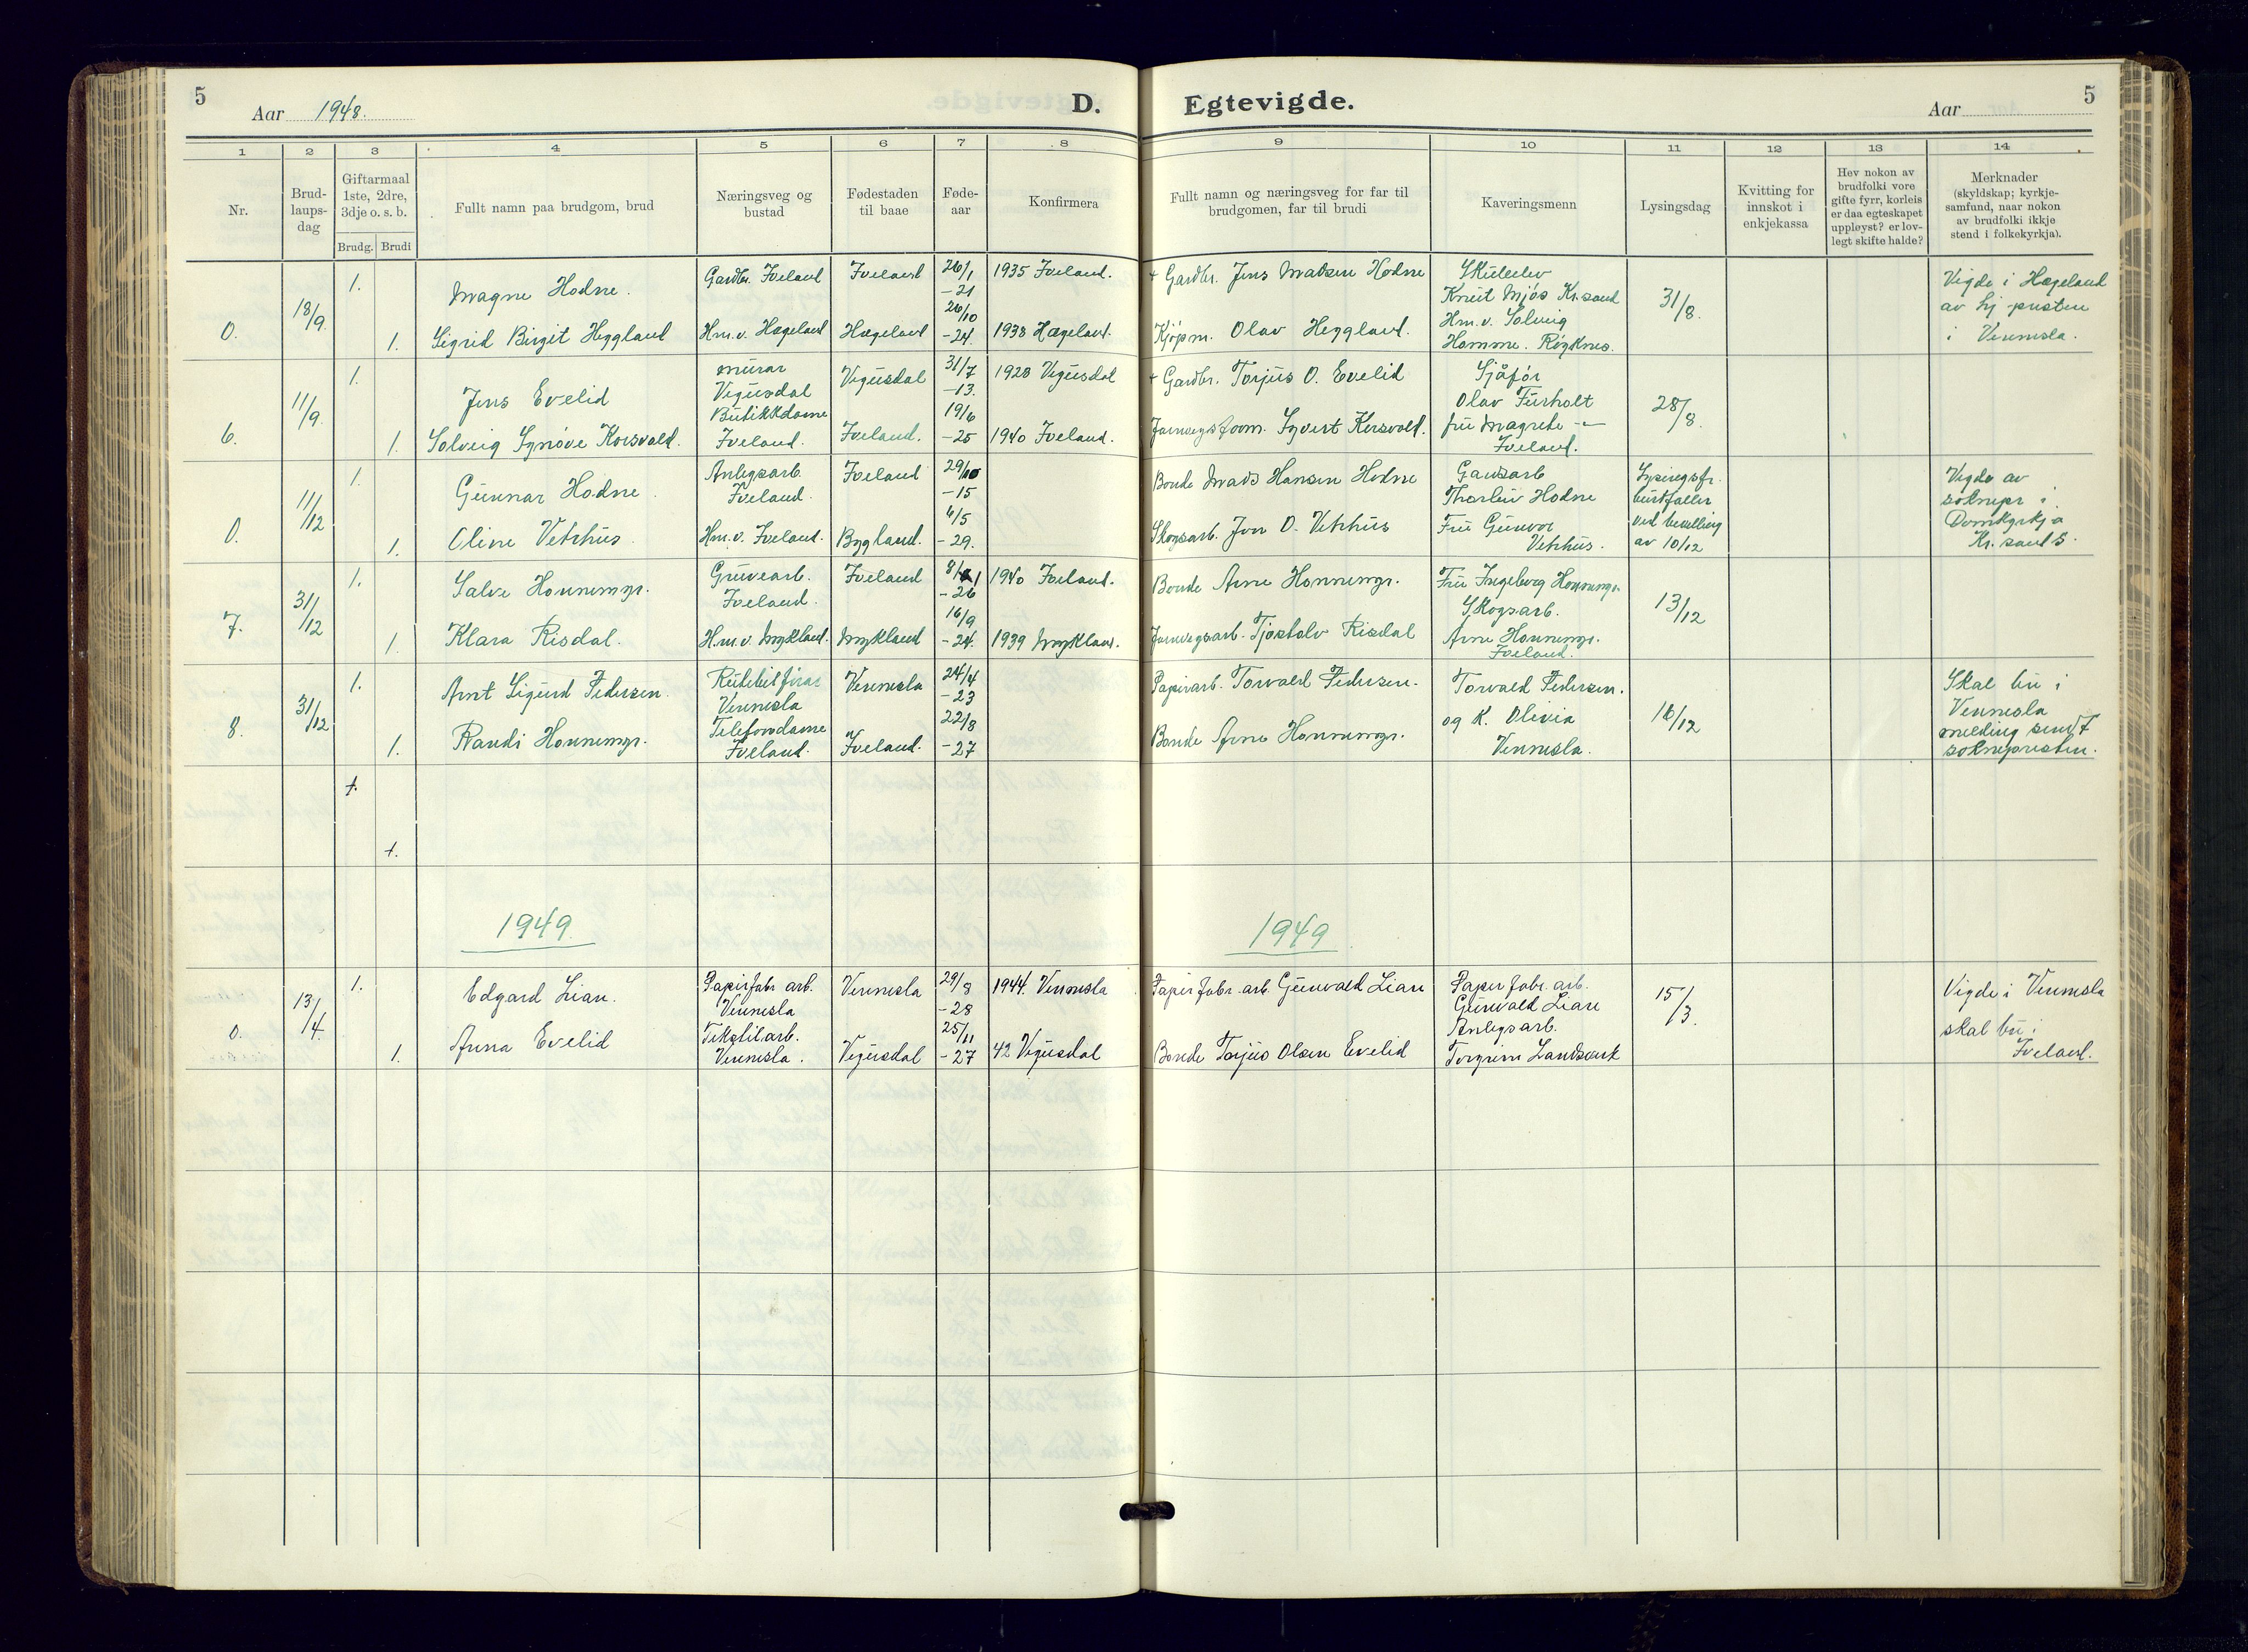 5
Aar 1948.
D.
Egtevigde.
Aar
5
1 2 3 4 5 6 7 8 9 10 11 12 13 14
Nr.
Brud-
laups-
dag
Giftarmaal
1ste, 2dre,
3dje o. s. b.
Brudg. Brudi
Fullt namn paa brudgom, brud
Næringsveg og
bustad
Fødestaden
til baae
Føde-
aar
Konfirmera
Fullt namn og næringsveg for far til
brudgomen, far til brudi
Kaveringsmenn
Lysingsdag
Kvitting for
innskot i
enkjekassa
Hev nokon av
brudfolki vore
gifte fyrr, korleis
er daa egteskapet
uppløyst? er lov-
legt skifte halde?
Merknader
(skyldskap; kyrkje-
samfund, naar nokon
av brudfolki ikkje
stend i folkekyrkja).
0.
18/9.
1.
1.
Magne Hodne.
Sigrid Birgit Heggland
Gardbr. Iveland
Hm.v. Hægeland
Iveland
Hægeland
26/1
-21
26/10
-24.
1935 Iveland.
1938 Hægeland.
+ Gardbr. Jens Madsen Hodne
Kjøpm. Olav Heggland.
Knut Mjøs Kr.sand
Hm.v. Solveig
Homme. Røyknes.
31/8.
Vigde i Hægeland
av hj-presten
i Vennesla.
6.
11/9.
1.
1.
Jens Evelid
Solveig Synøve Korsvald.
Murar
Vegusdal
Butikkdame
Iveland.
Vegusdal
Iveland.
31/7
-13.
19/6
-25
1928 Vegusdal
1940 Iveland.
+ Gardbr. Torjus O. Evelid
Jarnvegsform. Syvert Korsvald.
Sjåfør
Olav Furholt
fru Magrete -"-
Iveland.
28/8.
0.
11/12
1.
1.
Gunnar Hodne.
Oline Vetrhus.
Anlegsarb.
Iveland.
Hm.v. Iveland.
Iveland
Bygland.
29/10
-15
6/5
-29.
Bonde Mads Hansen Hodne
Skogsarb. Jon O. Vetrhus
Gardsarb
Thorleiv Hodne
Fru Gunvor
Vetrhus.
Lysingsfr.
burtfaller
ved bevilling
av 10/12
Vigde av
soknepr i
Domkyrkja
Kr.sand S.
7.
31/12
1.
1.
Salve Honnemyr.
Klara Risdal.
Gruvearb.
Iveland.
Hm.v. Mykland.
Iveland
Mykland
-26
16/9
-24.
1940 Iveland.
1939 Mykland.
Bonde Arne Honnemyr.
Jarnvegsarb. Tjostolv Risdal
Fru Ingeborg Honnemyr.
Skogsarb.
Arne Honnemyr.
Iveland.
13/12
8.
31/12
1.
1.
Arnt Sigurd Pedersen.
Randi Honnemyr.
Rutebilsjåfør
Vennesla
Telefondame
Iveland.
Vennesla
Iveland.
24/4
-23
22/8
-27
Papirarb. Torvald Pedersen.
Bonde Arne Honnemyr.
Torvald Pedersen.
og K. Olivia
Vennesla.
16/12
Skal bu i
Vennesla
melding sendt
soknepresten.
1.
1.
1949
1949
0.
13/4
1.
1.
Edgard Lian.
Anna Evelid
Papirfabr arb.
Vennesla
Tekstilarb.
Vennesla.
Vennesla
Vegusdal
29/8
-28
25/11
-27
1944. Vennesla
42 Vegusdal
Papirfabr. arb. Gunvald Lian
Bonde Torjus Olsen Evelid
Papirfabr. arb.
Gunvald Lian
Anlegsarb.
Torgrim Landsverk
15/3.
Vigde i Vennesla
skal bu i
Iveland.